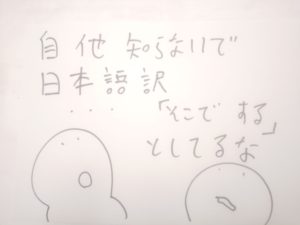 自他知らないで
日本語訳
・・・・「そこでする」
としてるな